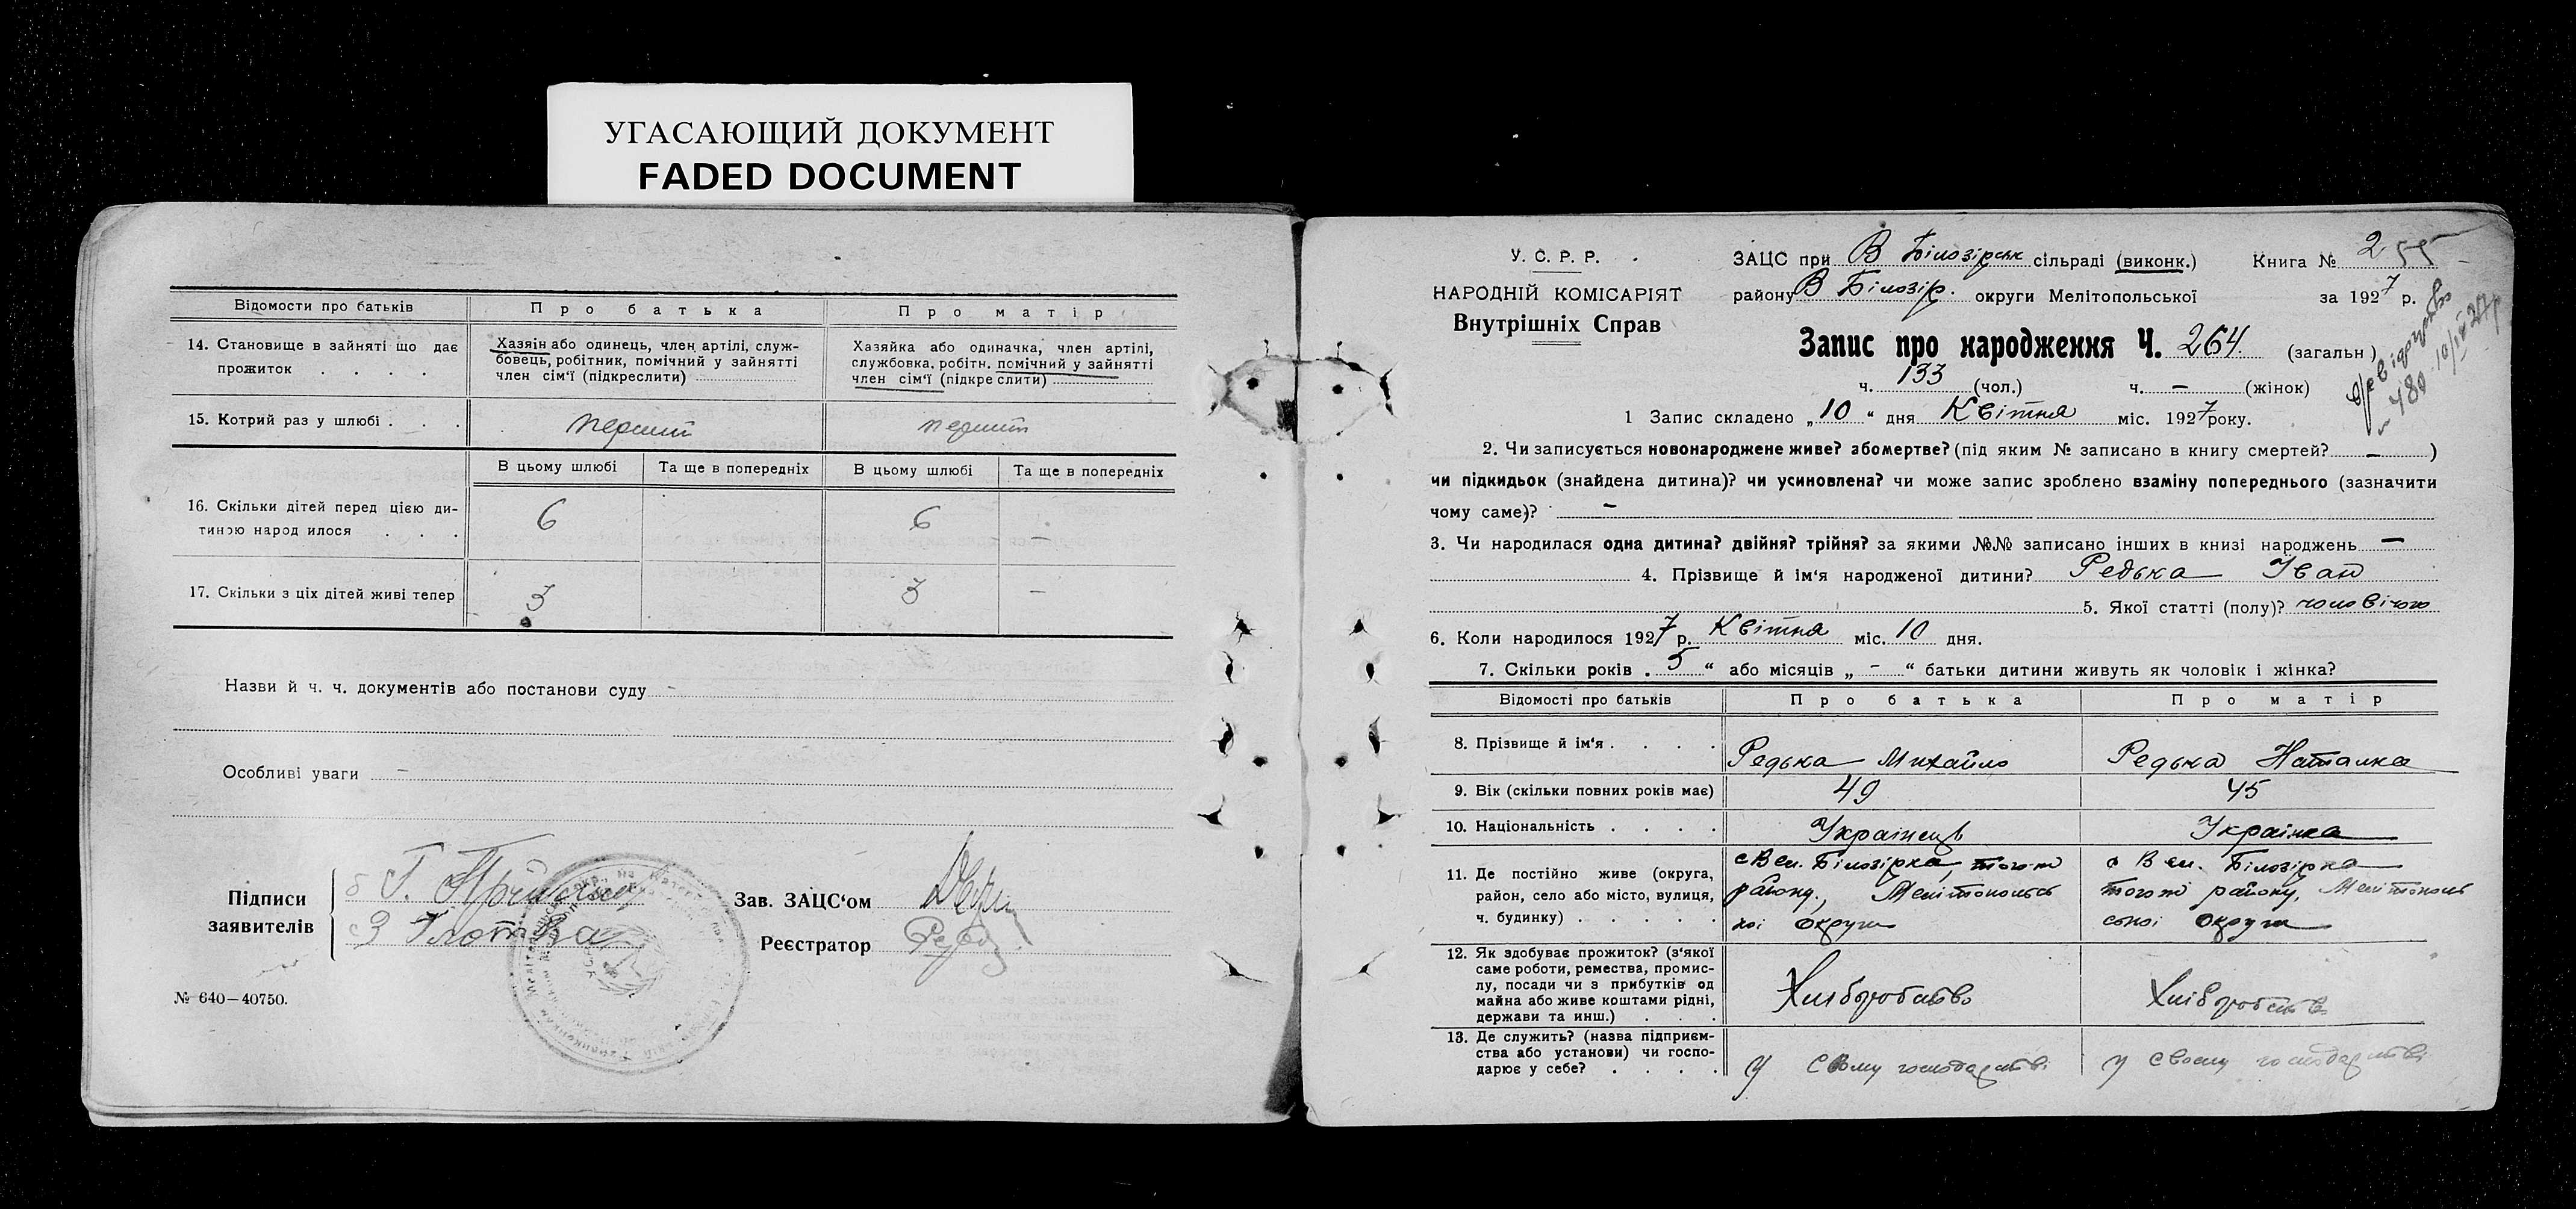 УГАСАЮЩИЙ ДОКУМЕНТ
FADED DOCUMENT
Відомости про батьків Про батька Про матір
14. Становище в зайняті що дає прожиток . . . .
Хазяін або одинець, член артілі, служ-
бовець, робітник, помічний у зайнятті
член сім'ї (підкреслити)
Хазяйка або одиначка, член артілі,
службовка, робітн. помічний у зайнятті
член сім'ї (підкреслити)
15. Котрий раз у шлюбі . . . перший перший
В цьому шлюбі Та ще в попередніх В цьому шлюбі Та ще в попередніх
16. Скільки дітей перед цією ди-
тиною народилося . . . 6 6 —
17. Скільки з ціх дітей живі тепер 3 3 —
Назви й ч. ч. документів або постанови суду -
Особливі уваги —
Підписи
заявителів
Зав. ЗАЦС'ом
Реєстратор
№ 640—40750.
У. С. Р. Р.
НАРОДНІЙ КОМІСАРІЯТ
Внутрішніх Справ
ЗАЦС при В Білозірськ сільраді (виконк.) Книга № 255
району В Білозір. округи Мелітопольської за 1927 р.
Запис про народження Ч. 264 (загальн)
ч. 133 (чол.) ч. — (жінок)
1 Запис складено „10" дня Квітня міс. 1927 року.
2. Чи записується новонароджене живе? або мертве? (під яким № записано в книгу смертей? — )
чи підкидьок (знайдена дитина)? чи усиновлена? чи може запис зроблено взаміну попереднього (зазначити
чому саме)? —
3. Чи народилася одна дитина? двійня? трійня? за якими №№ записано інших в книзі народжень —
4. Прізвище й ім'я народженої дитини? Редька Іван
5. Якої статті (полу)? чоловічого
6. Коли народилося 1927 р. Квітня міс. 10 дня.
7. Скільки років . 5 " або місяців „ - " батьки дитини живуть як чоловік і жінка?
Відомості про батьків Про батька Про матір
8. Прізвище й ім'я . . . . Редька Михайло Редька Наталка
9. Вік (скільки повних років має) 49 45
10. Національність . . . . Українець Українка
11. Де постійно живе (округа,
район, село або місто, вулиця,
ч. будинку) . . . . .
с В ел. Білозірка, того ж
району, Мелітопольсь
кої округи
с В ел. Білозірка
того ж району, Мелітополь
ської округи
12. Як здобуває прожиток? (з'якої
саме роботи, ремества, промис-
лу, посади чи з прибутків од
майна або живе коштами рідні,
держави та инш.) . . .
Хліборобство Хліборобство
13. Де служить? (назва підприєм-
ства або установи) чи госпо-
дарює у себе? . . . .
У свому господарстві У своему господарстві